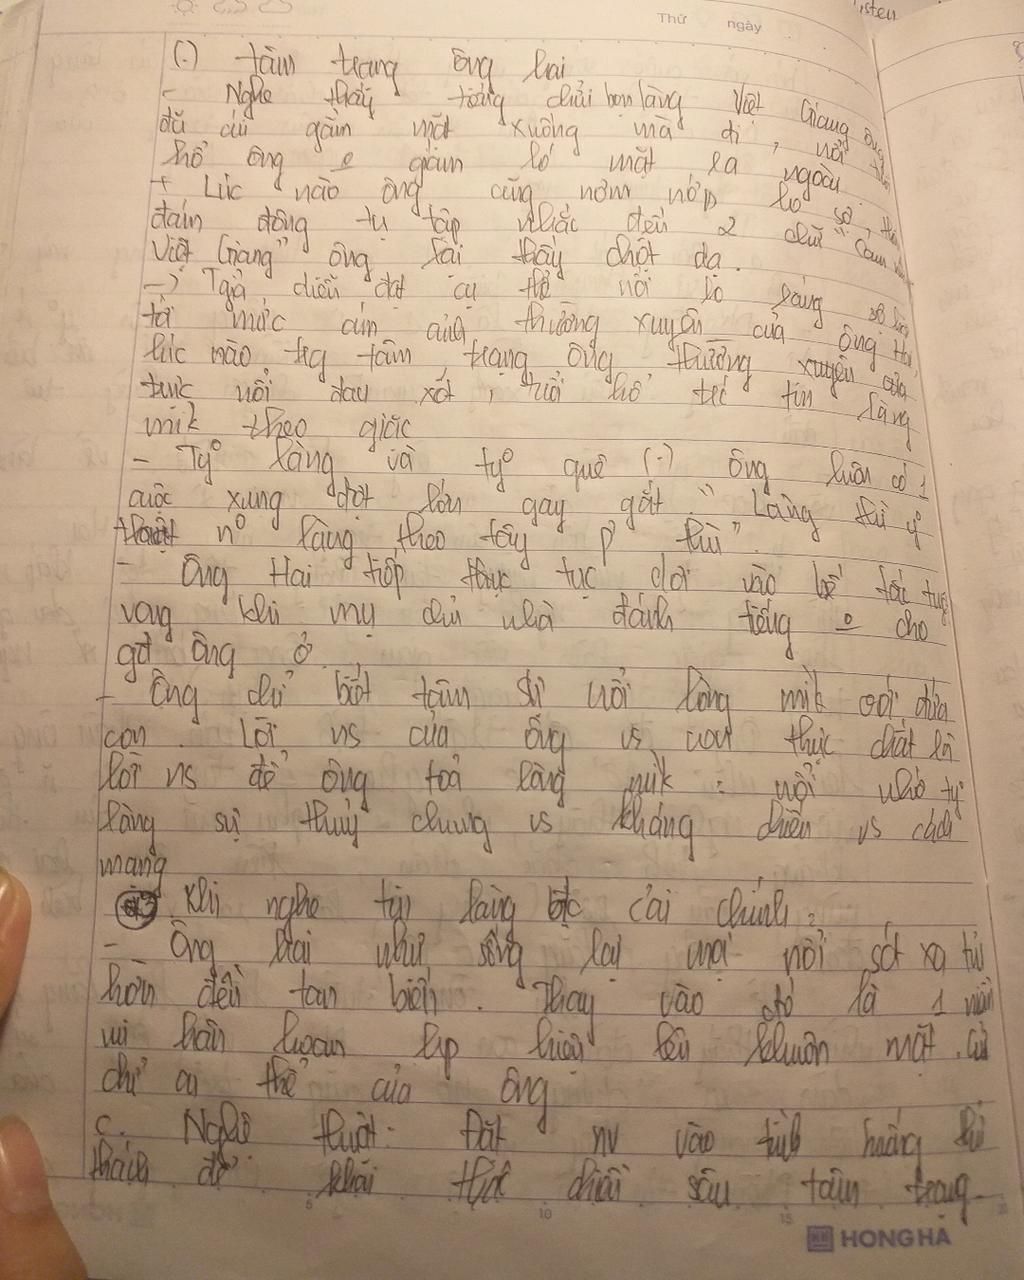 isten
Thứ ngày
(.) tâm trạng ông hai
- Nghe thấy tiếng chửi bọn làng Việt Giang ông
đã cúi gằm mặt xuống mà đi, nỗi
hổ ông o giám ló mặt ra ngoài
+ Lúc nào ông cũng nơm nớp lo sợ,
đám đông tụ tập nhắc đến 2 chữ "Cam
Việt Giang" ông lại thấy chột dạ.
-> Tgiả diễn đạt cụ thể nỗi lo lắng
tới mức ám ảnh thường xuyên của ông Hai,
lúc nào trg tâm trạng ông thường xuyên
tực nỗi đau xót, tủi hổ trc tin làng
mik theo giặc
- Ty làng và ty quê (.) ông luôn có 1
cuộc xung đột lớn gay gắt "Làng thì y
n làng theo tây p thù".
- Ông Hai tiếp thục tục dơi vào bế tắc tuyệt
vọng khi mụ chủ nhà đánh tiếng o cho
gđ ông ở
+ Ông chỉ biết tâm sự nỗi lòng mik với đứa
con. Lời ns của ông vs con thực chất là
lời ns để ông toả lòng mik: nỗi nhớ ty
làng sự thuỷ chung vs kháng chiến vs cách
mạng
Khi nghe tin làng đc cải chính:
- Ông Hai như sống lại mọi nỗi sót xa tủi
hờn đều tan biến. Thay vào đó là 1 niềm
vui hân hoan hiện lên khuôn mặt. Cử
chỉ cụ thể của ông
c. Nghệ thuật: Đặt nv vào tình huống thử
thách để khai thác chiều sâu tâm trạng
5 10 15
HONG HA